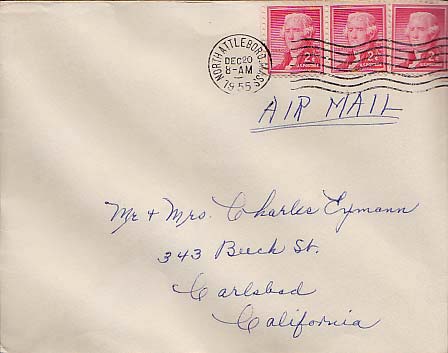 NORTH ATTLEBORO, MASS.
DEC 20
8-AM
1955
2¢ 2¢ 2¢
AIR MAIL
Mr & Mrs. Charles Eymann
343 Beech St.
Carlsbad
California